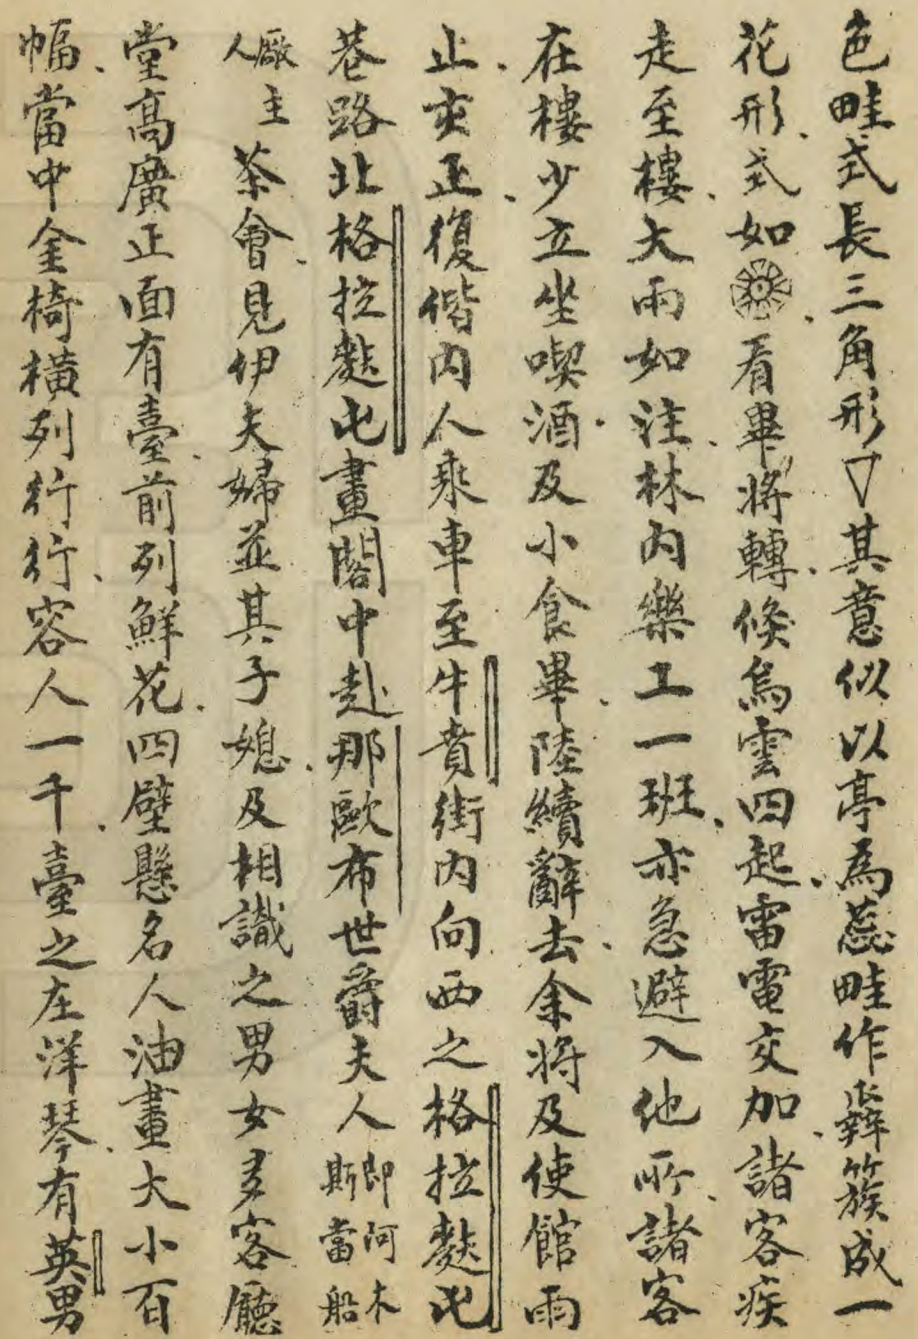 色畦式長三角形▽其意似以亭為蕊畦作瓣簇成一
花形式如看畢將轉倐烏雲四起雷電交加諸客疾
走至樓大雨如注林內樂工一班亦急避入他所諸客
在樓少立坐喫酒及小食畢陸續辭去余將及使館雨
止亥正復偕內人乘車至牛賁街內向西之格拉麩屯
巷路北格拉麩屯畫閣中赴那歐布世爵夫人即阿木斯當船
廠主人茶會見伊夫婦並其子媳及相識之男女多客廳
堂高廣正面有臺前列鮮花四壁懸名人油畫大小百
幅當中金椅橫列行行容人一千臺之左洋琴有英男